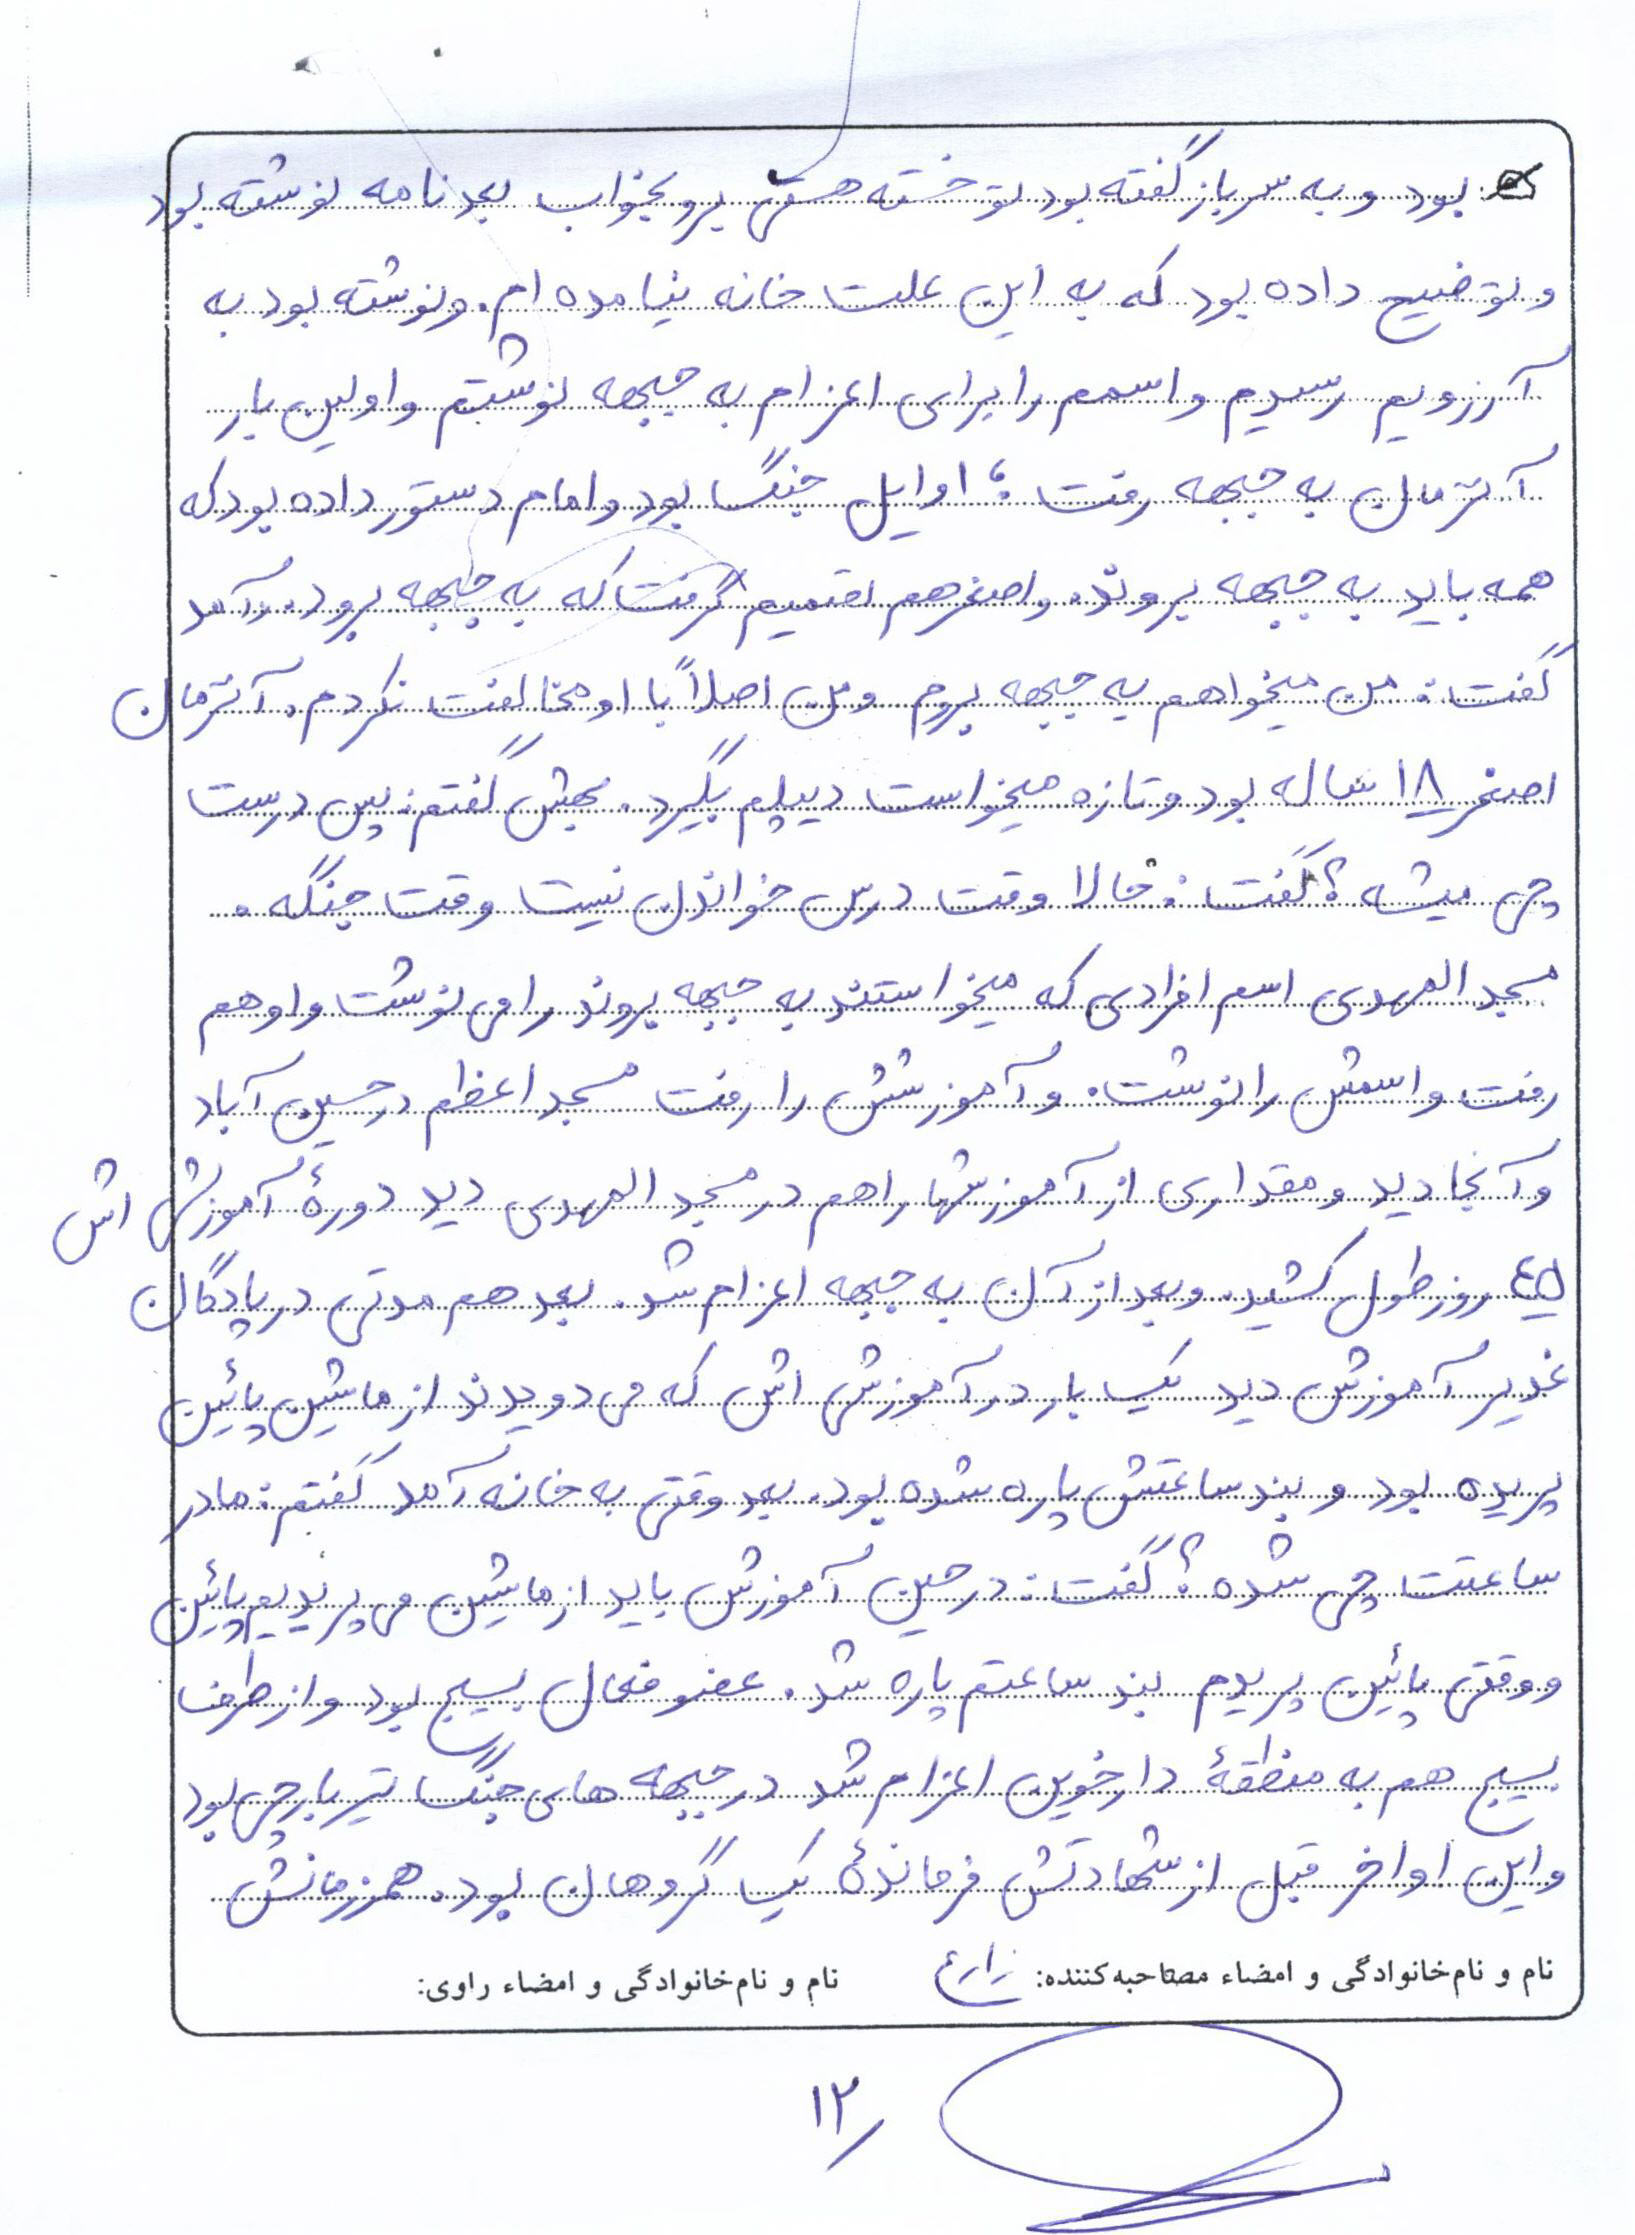 بود و به سرباز گفته بود تو خسته هستی برو بخواب بعد نامه نوشته بود
و توضیح داده بود که به این علت خانه نیامده ام. ونوشته بود به
آرزویم رسیدم و اسمم را برای اعزام به جبهه نوشتم و اولین بار
آنزمان به جبهه رفت؛ اوایل جنگ بود و امام دستور داده بود که
همه باید به جبهه بروند. و اصغر هم تصمیم گرفت که به جبهه برود. آمد
گفت: من میخواهم به جبهه بروم ومن اصلاً با او مخالفت نکردم. آنزمان
اصغر ۱۸ ساله بود و تازه میخواست دیپلم بگیرد. بهش گفتم: پس درست
چی میشه؟ گفت: حالا وقت درس خواندن نیست وقت جنگه.
مسجد المهدی اسم افرادی که میخواستند به جبهه بروند را می نوشت و او هم
رفت و اسمش را نوشت. و آموزشش را رفت مسجد اعظم در حسین آباد
و آنجا دید و مقداری از آموزشها را هم در مسجد المهدی دید دورهٔ آموزشی اش
۴۵ روز طول کشید. و بعد از آن به جبهه اعزام شد. بعد هم مدتی در پادگان
غدیر آموزش دید یک بار در آموزشی اش که می دویدند از ماشین پائین
پریده بود و بند ساعتش پاره شده بود. بعد وقتی به خانه آمد گفتم: مادر
ساعتت چی شده؟ گفت: در حین آموزش باید از ماشین می پریدیم پائین
و وقتی پائین پریدم بند ساعتم پاره شد. عضو فعال بسیج بود و از طرف
بسیج هم به منطقهٔ دارخوین اعزام شد در جبهه های جنگ تیربارچی بود
و این اواخر قبل از شهادتش فرماندهٔ یک گروهان بود. همرزمانش
نام و نام‌خانوادگی و امضاء مصاحبه‌کننده: زارع نام و نام‌خانوادگی و امضاء راوی:
۱۲